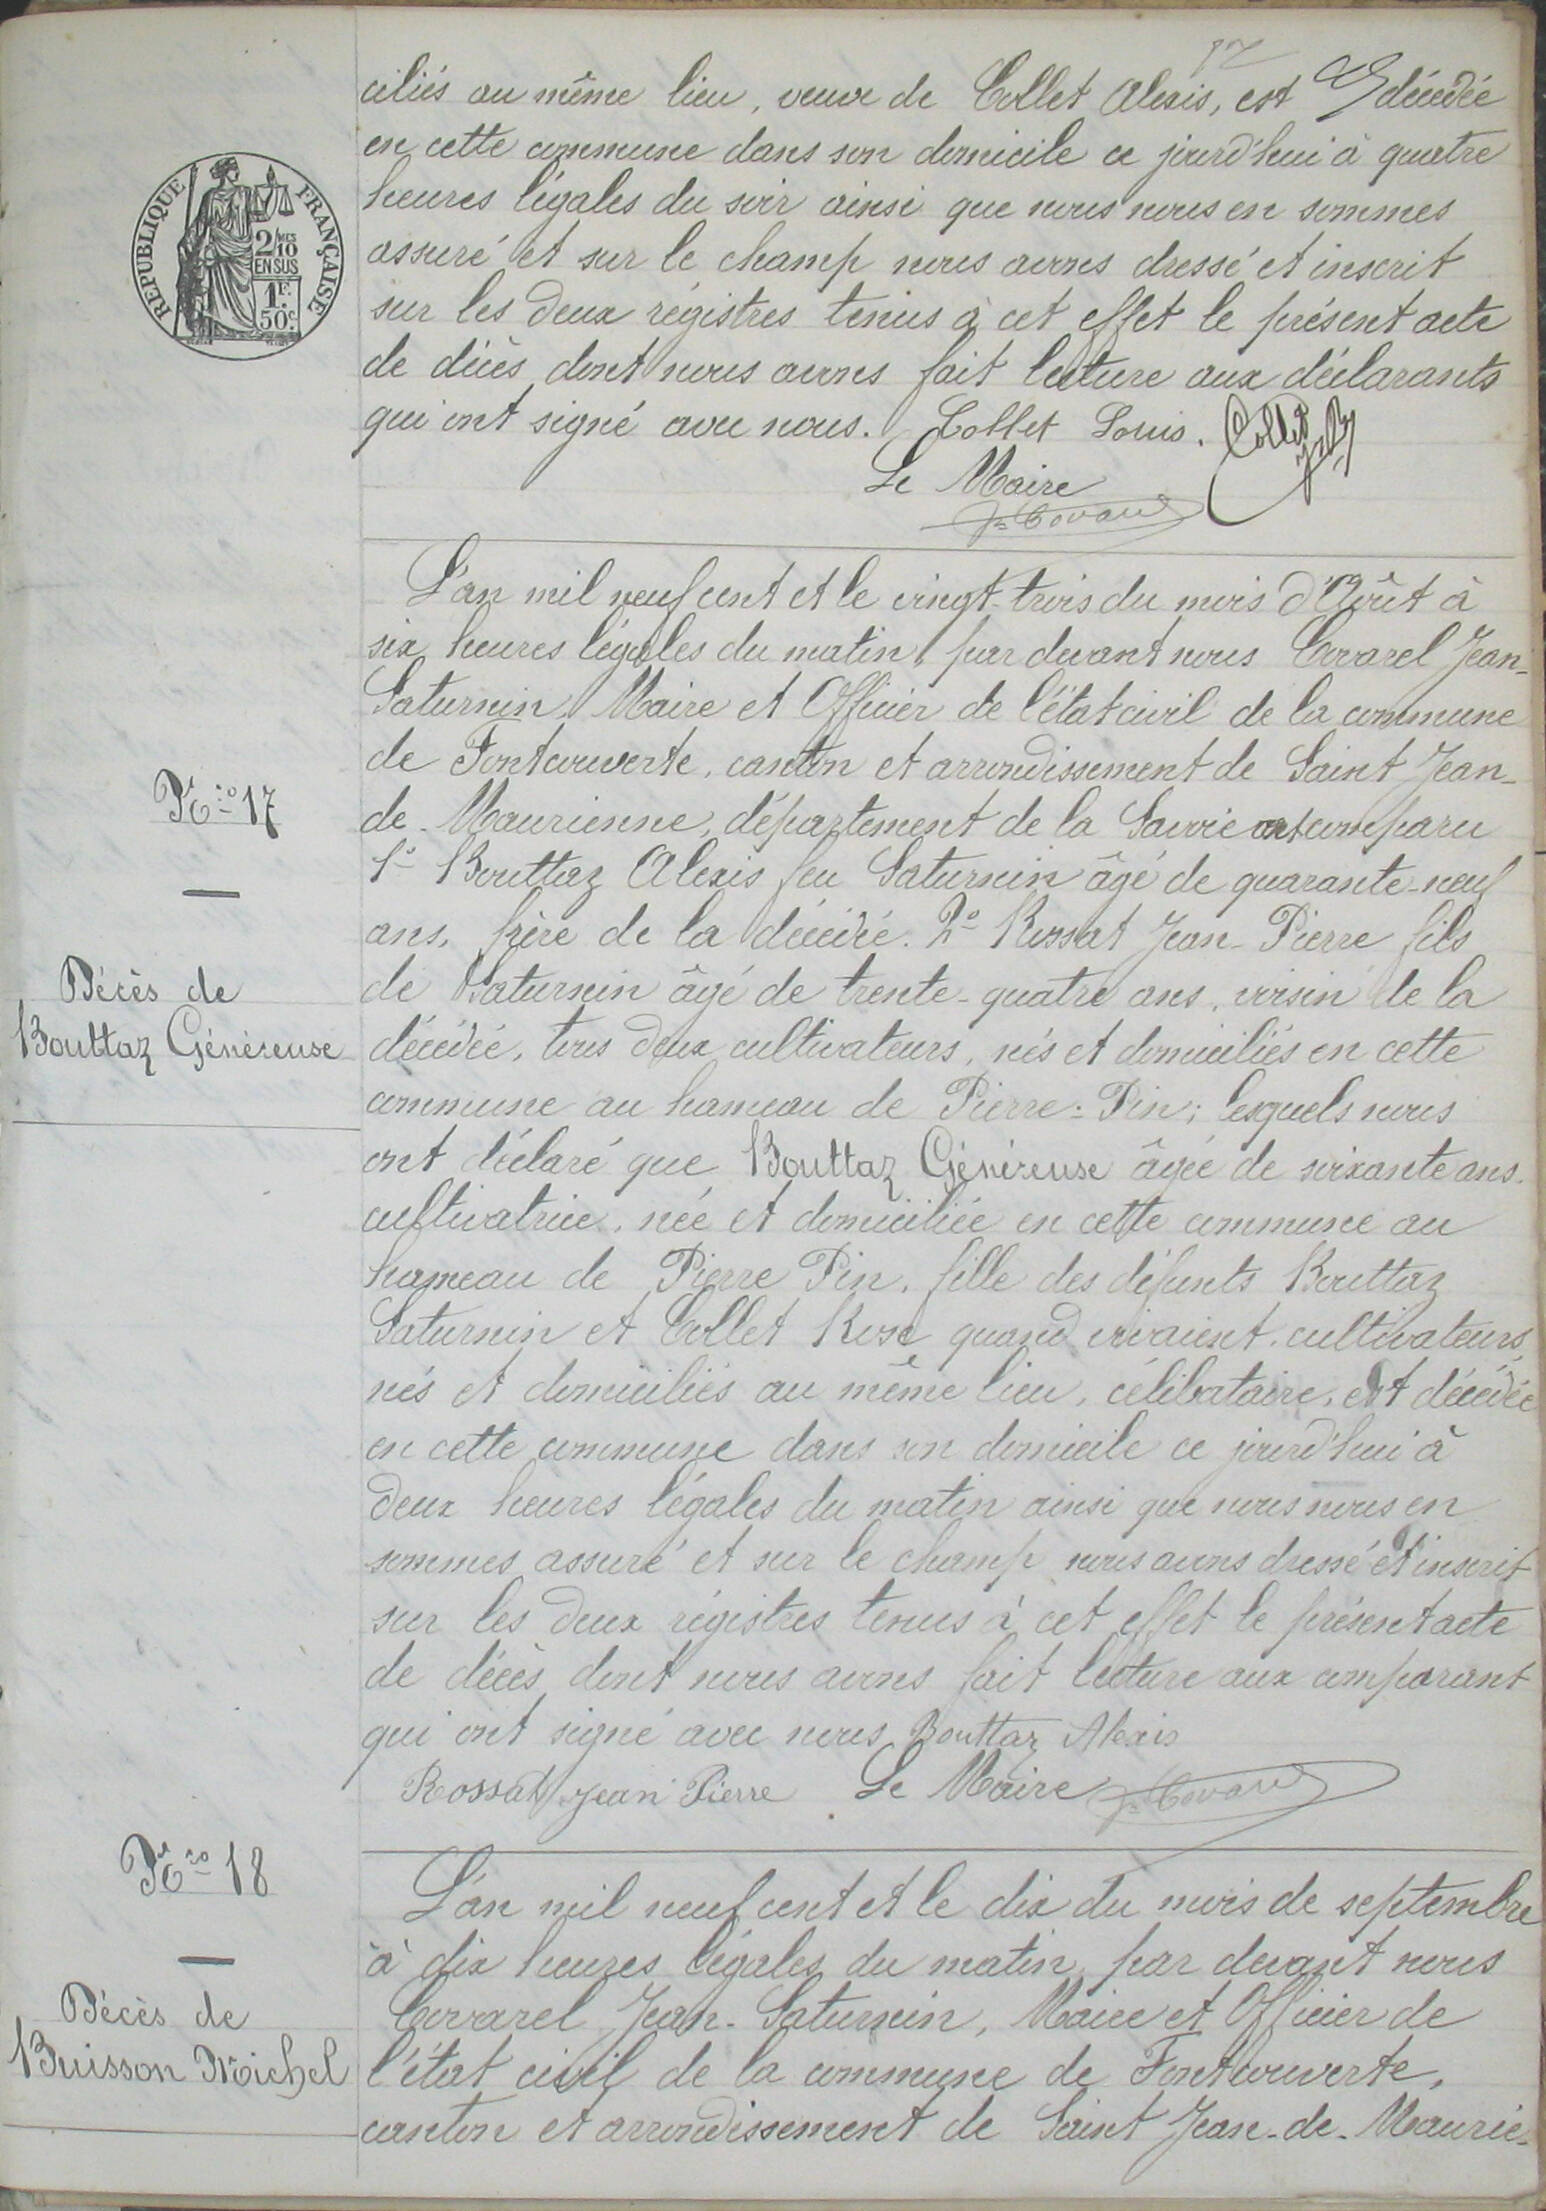 17
ciliés au même lieu, veuve de Collet Alexis, est décédée
en cette commune dans son domicile ce jourd'hui à quatre
heures légales du soir ainsi que nous nous en sommes
assuré et sur le champ nous avons dressé et inscrit
sur les deux régistres tenus à cet effet le présent acte
de décès dont nous avons fait lecture aux déclarants
qui ont signé avec nous. Collet Louis. Collet
Le Maire
REPUBLIQUE FRANÇAISE
2/10MES
EN SUS
1F.
50c.
L'an mil neuf cent et le vingt-trois du mois d'Août à
six heures légales du matin, par devant nous Covarel Jean-
Saturnin, Maire et Officier de l'état civil de la commune
de Fontcouverte, canton et arrondissement de Saint Jean-
de-Maurienne, département de la Savoie ont comparu
1º Bouttaz Alexis feu Saturnin âgé de quarante-neuf
ans, frère de la décédée. 2º Rossat Jean-Pierre fils
de Saturnin âgé de trente-quatre ans, voisin de la
décédée, tous deux cultivateurs, nés et domiciliés en cette
commune au hameau de Pierre-Pin; lesquels nous
ont déclaré que Bouttaz Généreuse âgée de soixante ans.
cultivatrice, née et domiciliée en cette commune au
hameau de Pierre Pin, fille des défunts Bouttaz
Saturnin et Collet Rose quand vivaient, cultivateurs,
nés et domiciliés au même lieu, célibataire, est décédée
en cette commune dans son domicile ce jourd'hui à
deux heures légales du matin ainsi que nous nous en
sommes assuré et sur le champ nous avons dressé et inscrit
sur les deux régistres tenus à cet effet le présent acte
de décès dont nous avons fait lecture aux comparant
qui ont signé avec nous Bouttaz Alexis
Rossat Jean Pierre Le Maire Jn Covarel
Nro 17
Décès de
Bouttaz Généreuse
Nro 18
Décès de
Buisson Michel
L'an mil neuf cent et le dix du mois de septembre
à dix heures légales du matin, par devant nous
Covarel Jean-Saturnin, Maire et Officier de
l'état civil de la commune de Fontcouverte,
canton et arrondissement de Saint Jean-de-Maurie-